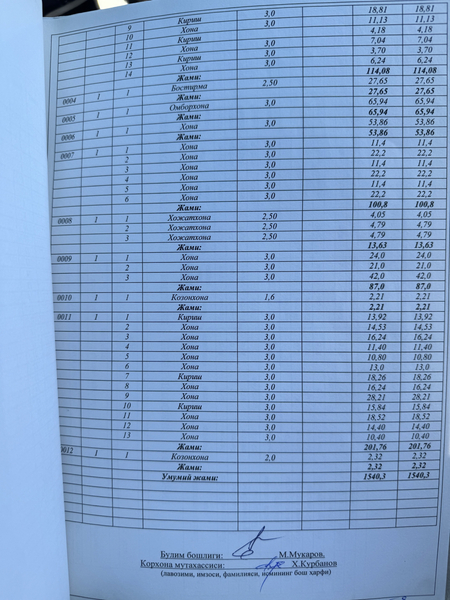 9 Кириш 3,0 18,81 18,81
10 Хона 3,0 11,13 11,13
11 Кириш 3,0 4,18 4,18
12 Хона 3,0 7,04 7,04
13 Кириш 3,0 3,70 3,70
14 Хона 3,0 6,24 6,24
Жами: 114,08 114,08
0004 1 1 Бостирма 2,50 27,65 27,65
Жами: 27,65 27,65
0005 1 1 Омборхона 3,0 65,94 65,94
Жами: 65,94 65,94
0006 1 1 Хона 3,0 53,86 53,86
Жами: 53,86 53,86
0007 1 1 Хона 3,0 11,4 11,4
2 Хона 3,0 22,2 22,2
3 Хона 3,0 11,4 11,4
4 Хона 3,0 22,2 22,2
5 Хона 3,0 11,4 11,4
6 Хона 3,0 22,2 22,2
Жами: 100,8 100,8
0008 1 1 Хожатхона 2,50 4,05 4,05
2 Хожатхона 2,50 4,79 4,79
3 Хожатхона 2,50 4,79 4,79
Жами: 13,63 13,63
0009 1 1 Хона 3,0 24,0 24,0
2 Хона 3,0 21,0 21,0
3 Хона 3,0 42,0 42,0
Жами: 87,0 87,0
0010 1 1 Козонхона 1,6 2,21 2,21
Жами: 2,21 2,21
0011 1 1 Кириш 3,0 13,92 13,92
2 Хона 3,0 14,53 14,53
3 Хона 3,0 16,24 16,24
4 Хона 3,0 11,40 11,40
5 Хона 3,0 10,80 10,80
6 Хона 3,0 13,0 13,0
7 Кириш 3,0 18,26 18,26
8 Хона 3,0 16,24 16,24
9 Хона 3,0 28,21 28,21
10 Кириш 3,0 15,84 15,84
11 Хона 3,0 18,52 18,52
12 Хона 3,0 14,40 14,40
13 Хона 3,0 10,40 10,40
Жами: 201,76 201,76
0012 1 1 Козонхона 2,0 2,32 2,32
Жами: 2,32 2,32
Умумий жами: 1540,3 1540,3
Булим бошлиги: М.Мукаров.
Корхона мутахассиси: Х.Курбанов
(лавозими, имзоси, фамилияси, исмининг бош ҳарфи)